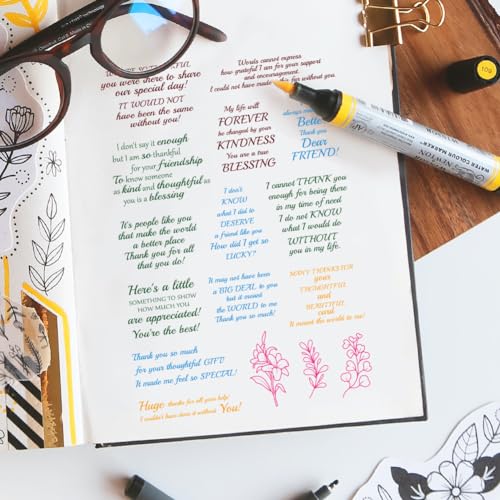 you were there to share
our special day!
IT WOULD NOT
have been the same
without you!
Words cannot express
how grateful I am for your support
and encouragement.
I could not have made this far without you
My life will
FOREVER
be changed by your
KINDNESS
You are a true
BLESSING
always
Better
Thank you
Dear
FRIEND!
I don't say it enough
but I am so thankful
for your friendship
To know someone
as kind and thoughtful as
you is a blessing
I don't
KNOW
what I did to
DESERVE
a friend like you
How did I get so
LUCKY?
I cannot THANK you
enough for being there
in my time of need
I do not KNOW
what I would do
WITHOUT
you in my life.
It's people like you
that make the world
a better place
Thank you for all
that you do!
Here's a little
SOMETHING TO SHOW
HOW MUCH YOU
are appreciated!
You're the best!
It may not have been
a BIG DEAL to you
but it meant
the WORLD to me
Thank you so much!
MANY THANKS FOR
your
THOUGHTFUL
and
BEAUTIFUL
card
It meant the world to me!
Thank you so much
for your thoughtful GIFT!
It made me feel so SPECIAL!
Huge thanks for all your help!
I couldn't have done it without You!
WATER COLOUR MARKER
NEWTON